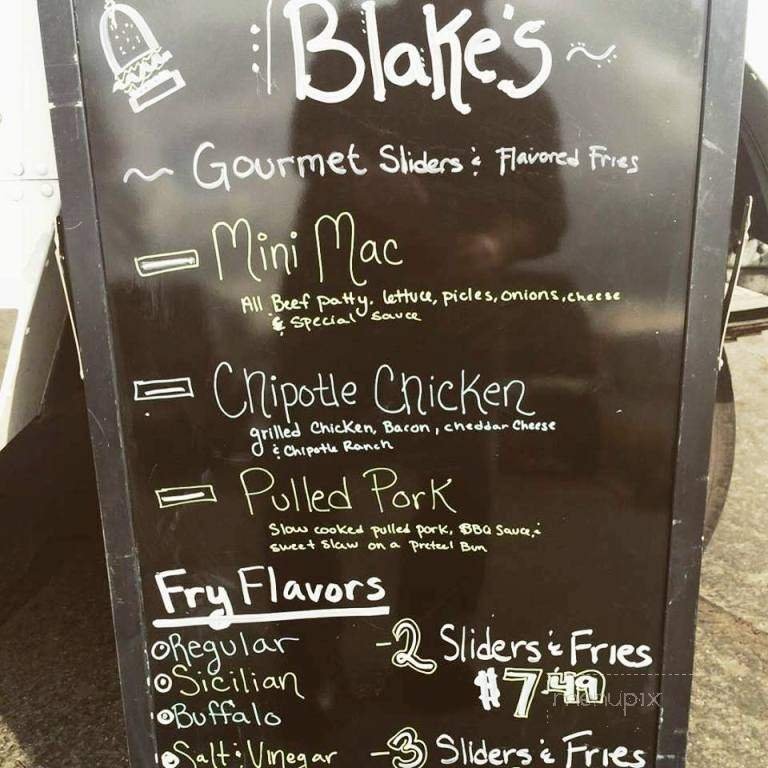 Blake's
~ Gourmet Sliders & Flavored Fries
Mini Mac
All Beef patty. lettuce, picles, onions, cheese
& Special sauce
Chipotle Chicken
grilled Chicken, Bacon, cheddar Cheese
& Chipotle Ranch
Pulled Pork
Slow cooked pulled pork, BBQ Sauce, &
sweet slaw on a Pretzel Bun
Fry Flavors
Regular
Sicilian
Buffalo
Salt & Vinegar
-2 Sliders & Fries
$7.49
-3 Sliders & Fries
menupix